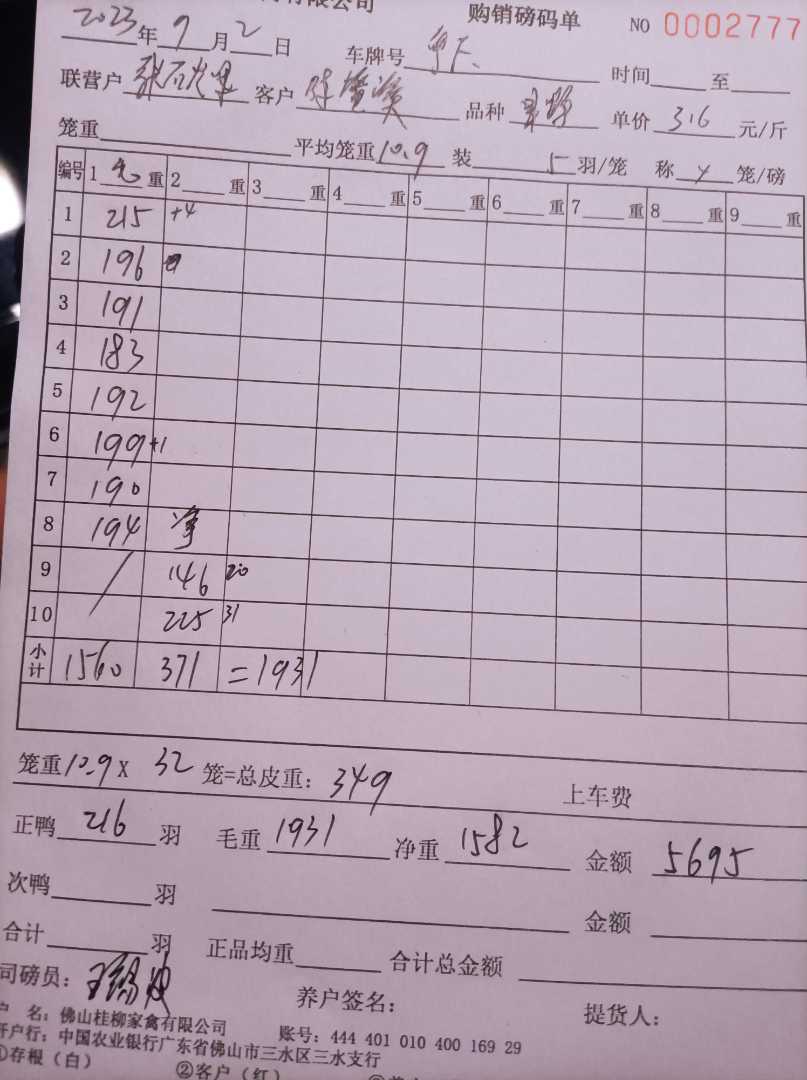 有限公司
购销磅码单 NO 0002777
2023年9月2日 车牌号 时间 至
联营户 客户 品种 单价 3.6 元/斤
笼重 平均笼重10.9 装 5 羽/笼 称 4 笼/磅
编号 1 毛 重 2 重 3 重 4 重 5 重 6 重 7 重 8 重 9 重
1 215 +4
2 196
3 191
4 183
5 192
6 199 +1
7 190
8 194 净
9 / 146 20
10 225 31
小计 1560 371 =1931
笼重10.9X 32 笼=总皮重: 349 上车费
正鸭 216 羽 毛重 1931 净重 1582 金额 5695
次鸭 羽 金额
合计 羽 正品均重 合计总金额
司磅员: 养户签名: 提货人:
户 名: 佛山桂柳家禽有限公司 账号: 444 401 010 400 169 29
开户行: 中国农业银行广东省佛山市三水区三水支行
①存根(白) ②客户(红)